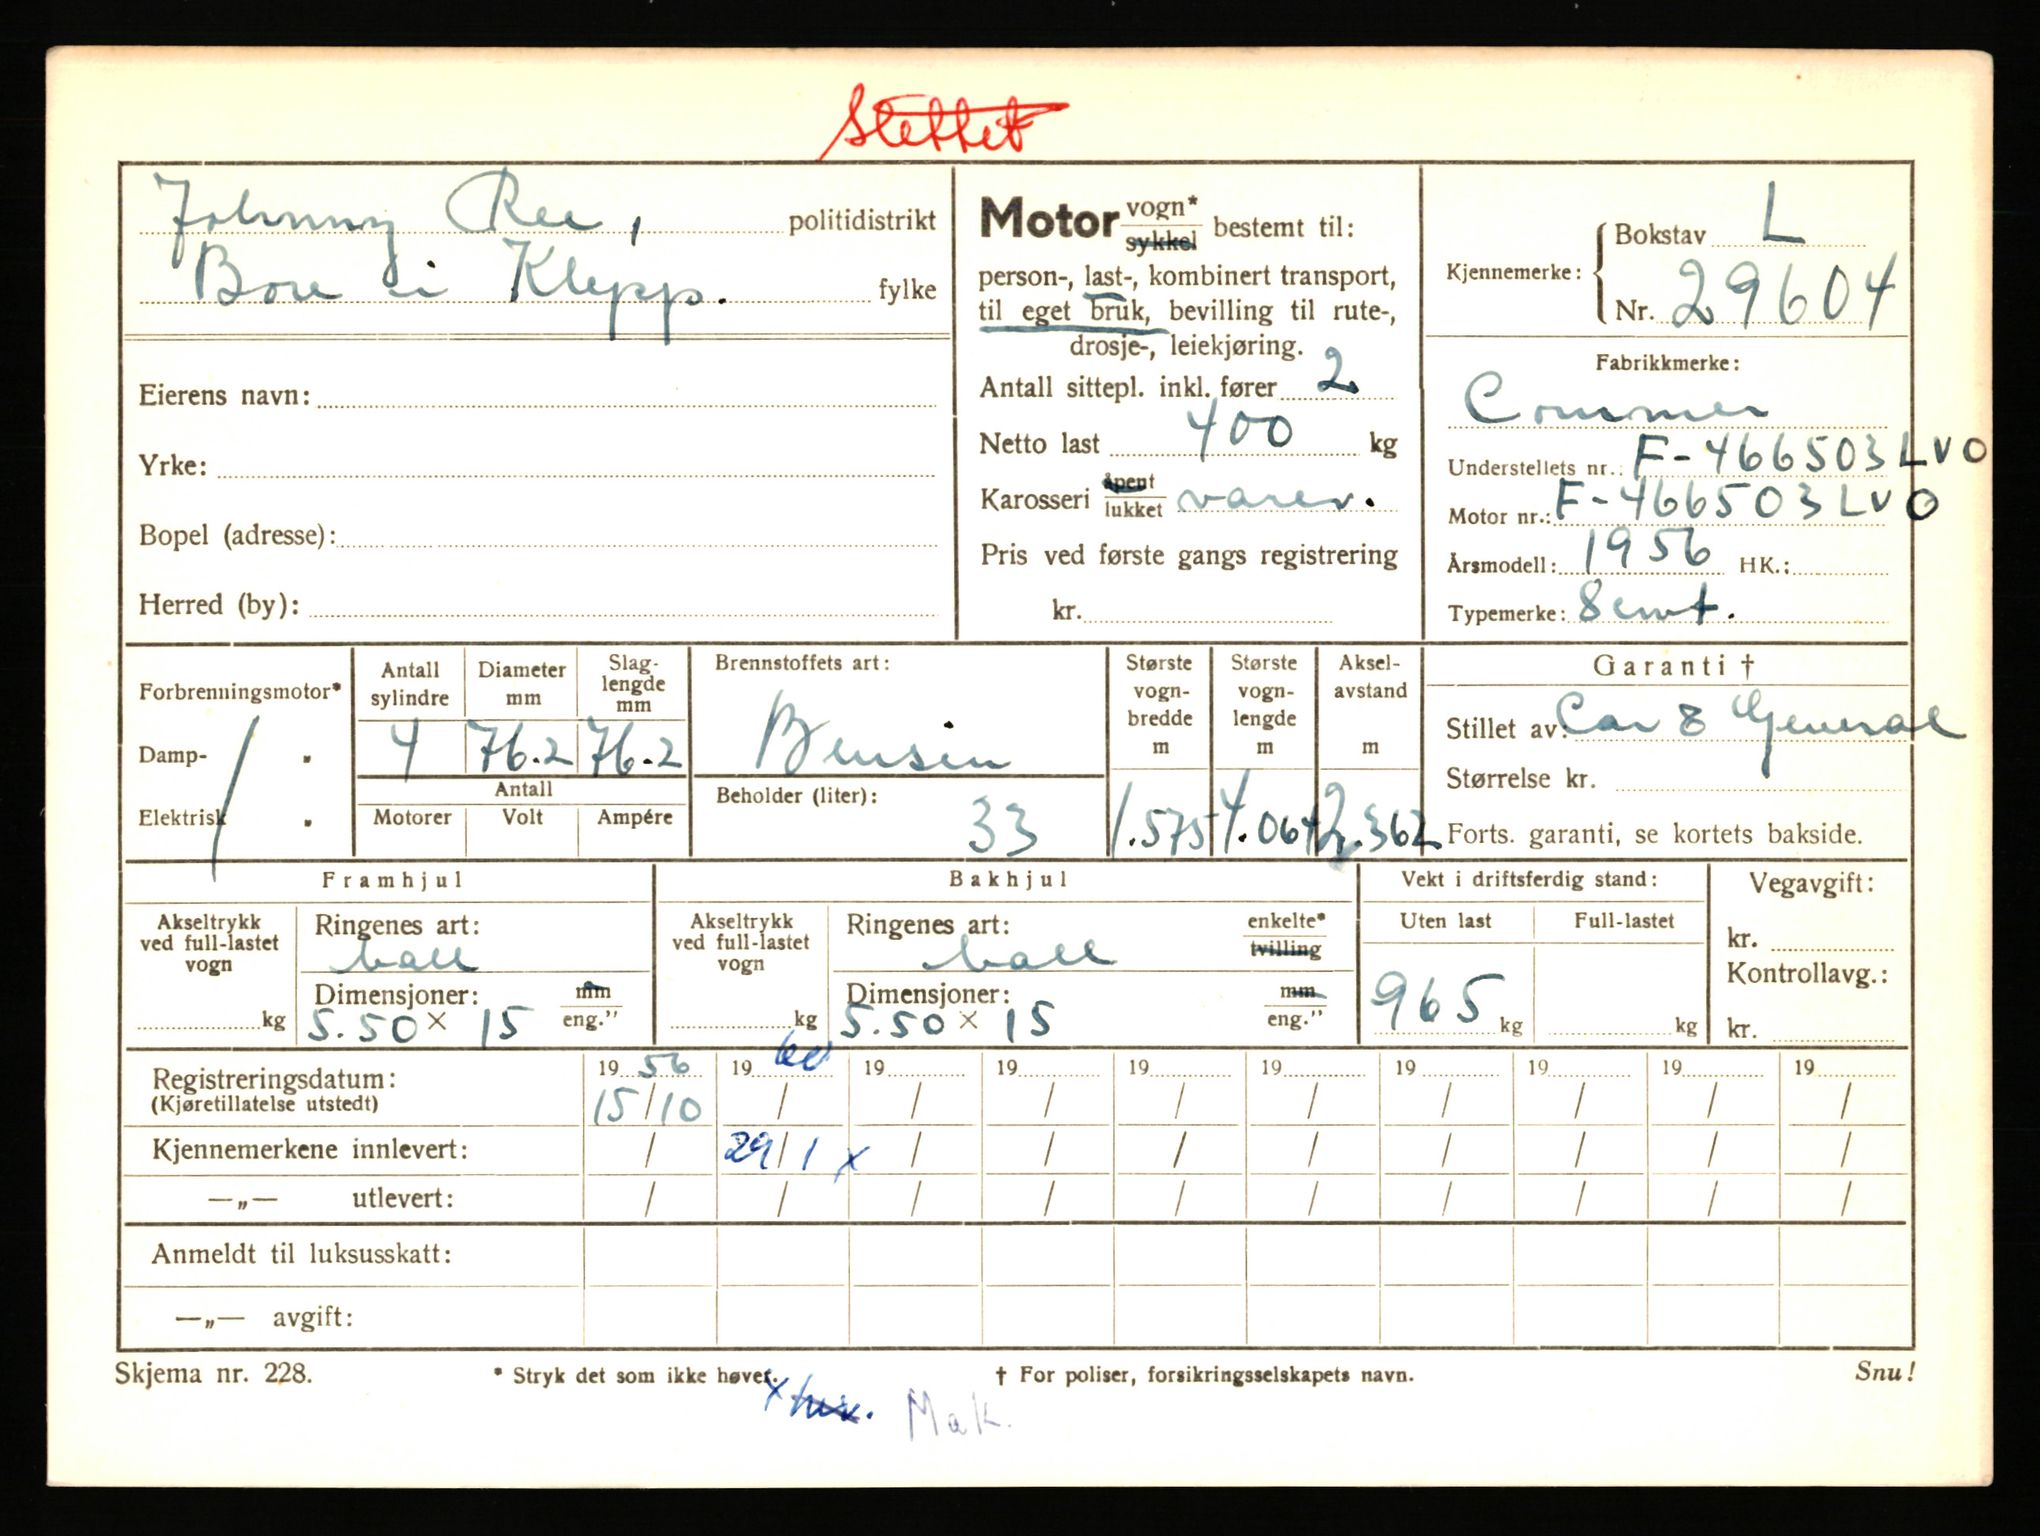 Slettet
Johnny Ree, politidistrikt
Bore i Klepp. fylke
Eierens navn:
Yrke:
Bopel (adresse):
Herred (by):
Motor vogn* sykkel bestemt til:
person-, last-, kombinert transport,
til eget bruk, bevilling til rute-,
drosje-, leiekjøring.
Antall sittepl. inkl. fører 2
Netto last 400 kg
Karosseri åpent lukket varev.
Pris ved første gangs registrering
kr.
Kjennemerke: Bokstav L
Nr. 29604
Fabrikkmerke:
Commer
Understellets nr.: F-466503LVO
Motor nr.: F-466503LVO
Årsmodell: 1956 HK.:
Typemerke: 8 cwt.
Forbrenningsmotor*
Damp- "
Elektrisk "
Antall sylindre Diameter mm Slag-lengde mm
4 76.2 76.2
Antall
Motorer Volt Ampére
Brennstoffets art:
Bensin
Beholder (liter):
33
Største vogn-bredde m
1.575
Største vogn-lengde m
4.064
Aksel-avstand m
2.362
Garanti †
Stillet av: Car & General
Størrelse kr.
Forts. garanti, se kortets bakside.
Framhjul
Akseltrykk ved full-lastet vogn
kg
Ringenes art:
ball
Dimensjoner: mm eng."
5.50 × 15
Bakhjul
Akseltrykk ved full-lastet vogn
kg
Ringenes art: enkelte* tvilling
ball
Dimensjoner: mm eng."
5.50 × 15
Vekt i driftsferdig stand:
Uten last Full-lastet
965 kg kg
Vegavgift:
kr.
Kontrollavg.:
kr.
Registreringsdatum: 19 56 19 60 19 19 19 19 19 19 19 19
(Kjøretillatelse utstedt) 15/10 / / / / / / / / /
Kjennemerkene innlevert: / 29/1 x / / / / / / / /
—„— utlevert: / / / / / / / / / /
Anmeldt til luksusskatt:
—„— avgift:
Skjema nr. 228. * Stryk det som ikke høver. † For poliser, forsikringsselskapets navn. Snu!
x Mak.